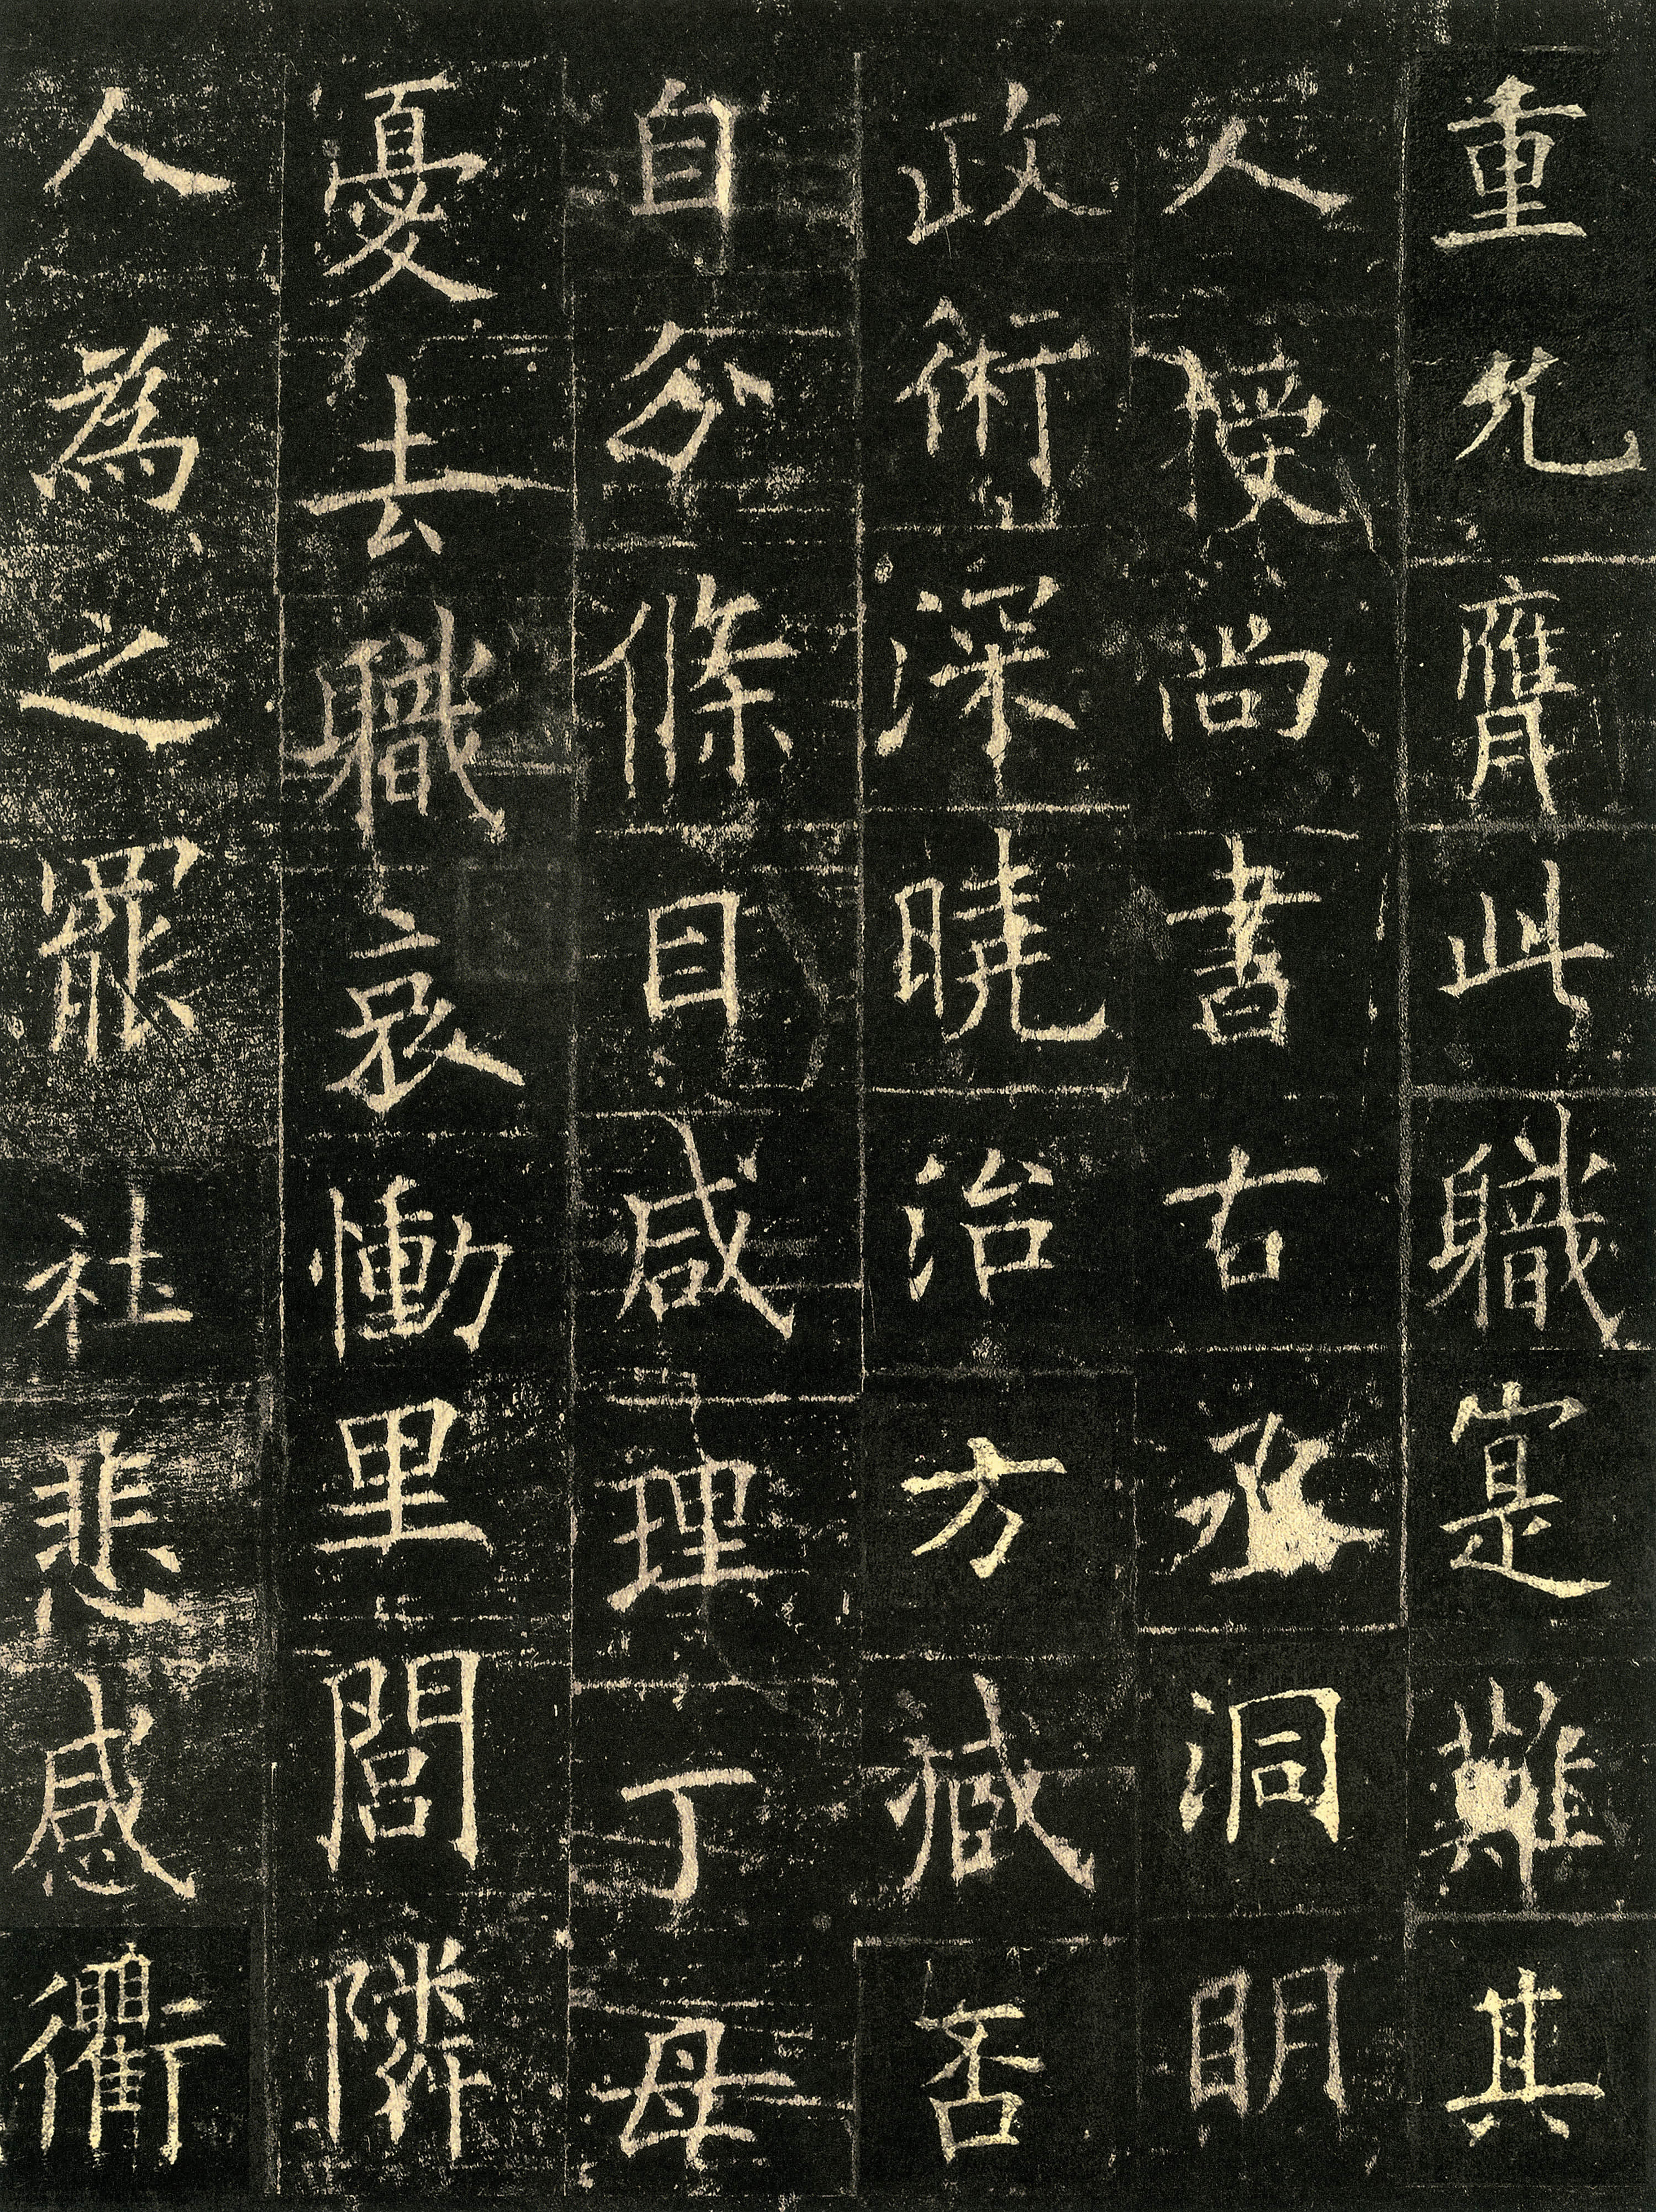 重允膺此職寔難其
人授尚書右丞洞明
政術深曉治方臧否
自分條目咸理丁母
憂去職哀慟里閭隣
人為之罷社悲感衢